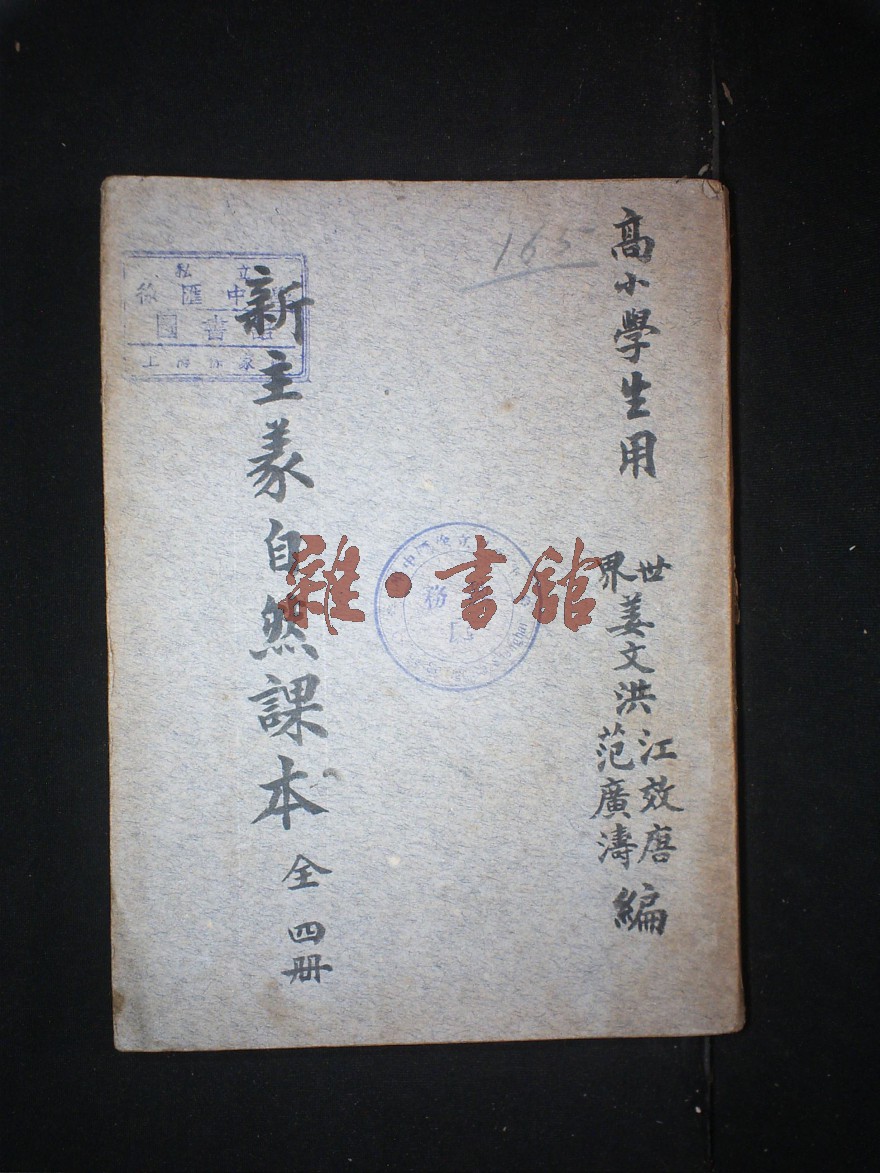 高小學生用
世界
姜文洪
江效唐
范廣濤
編
新主義自然課本 全四冊
165
私立
徐匯中
圖書
雜·書館
務